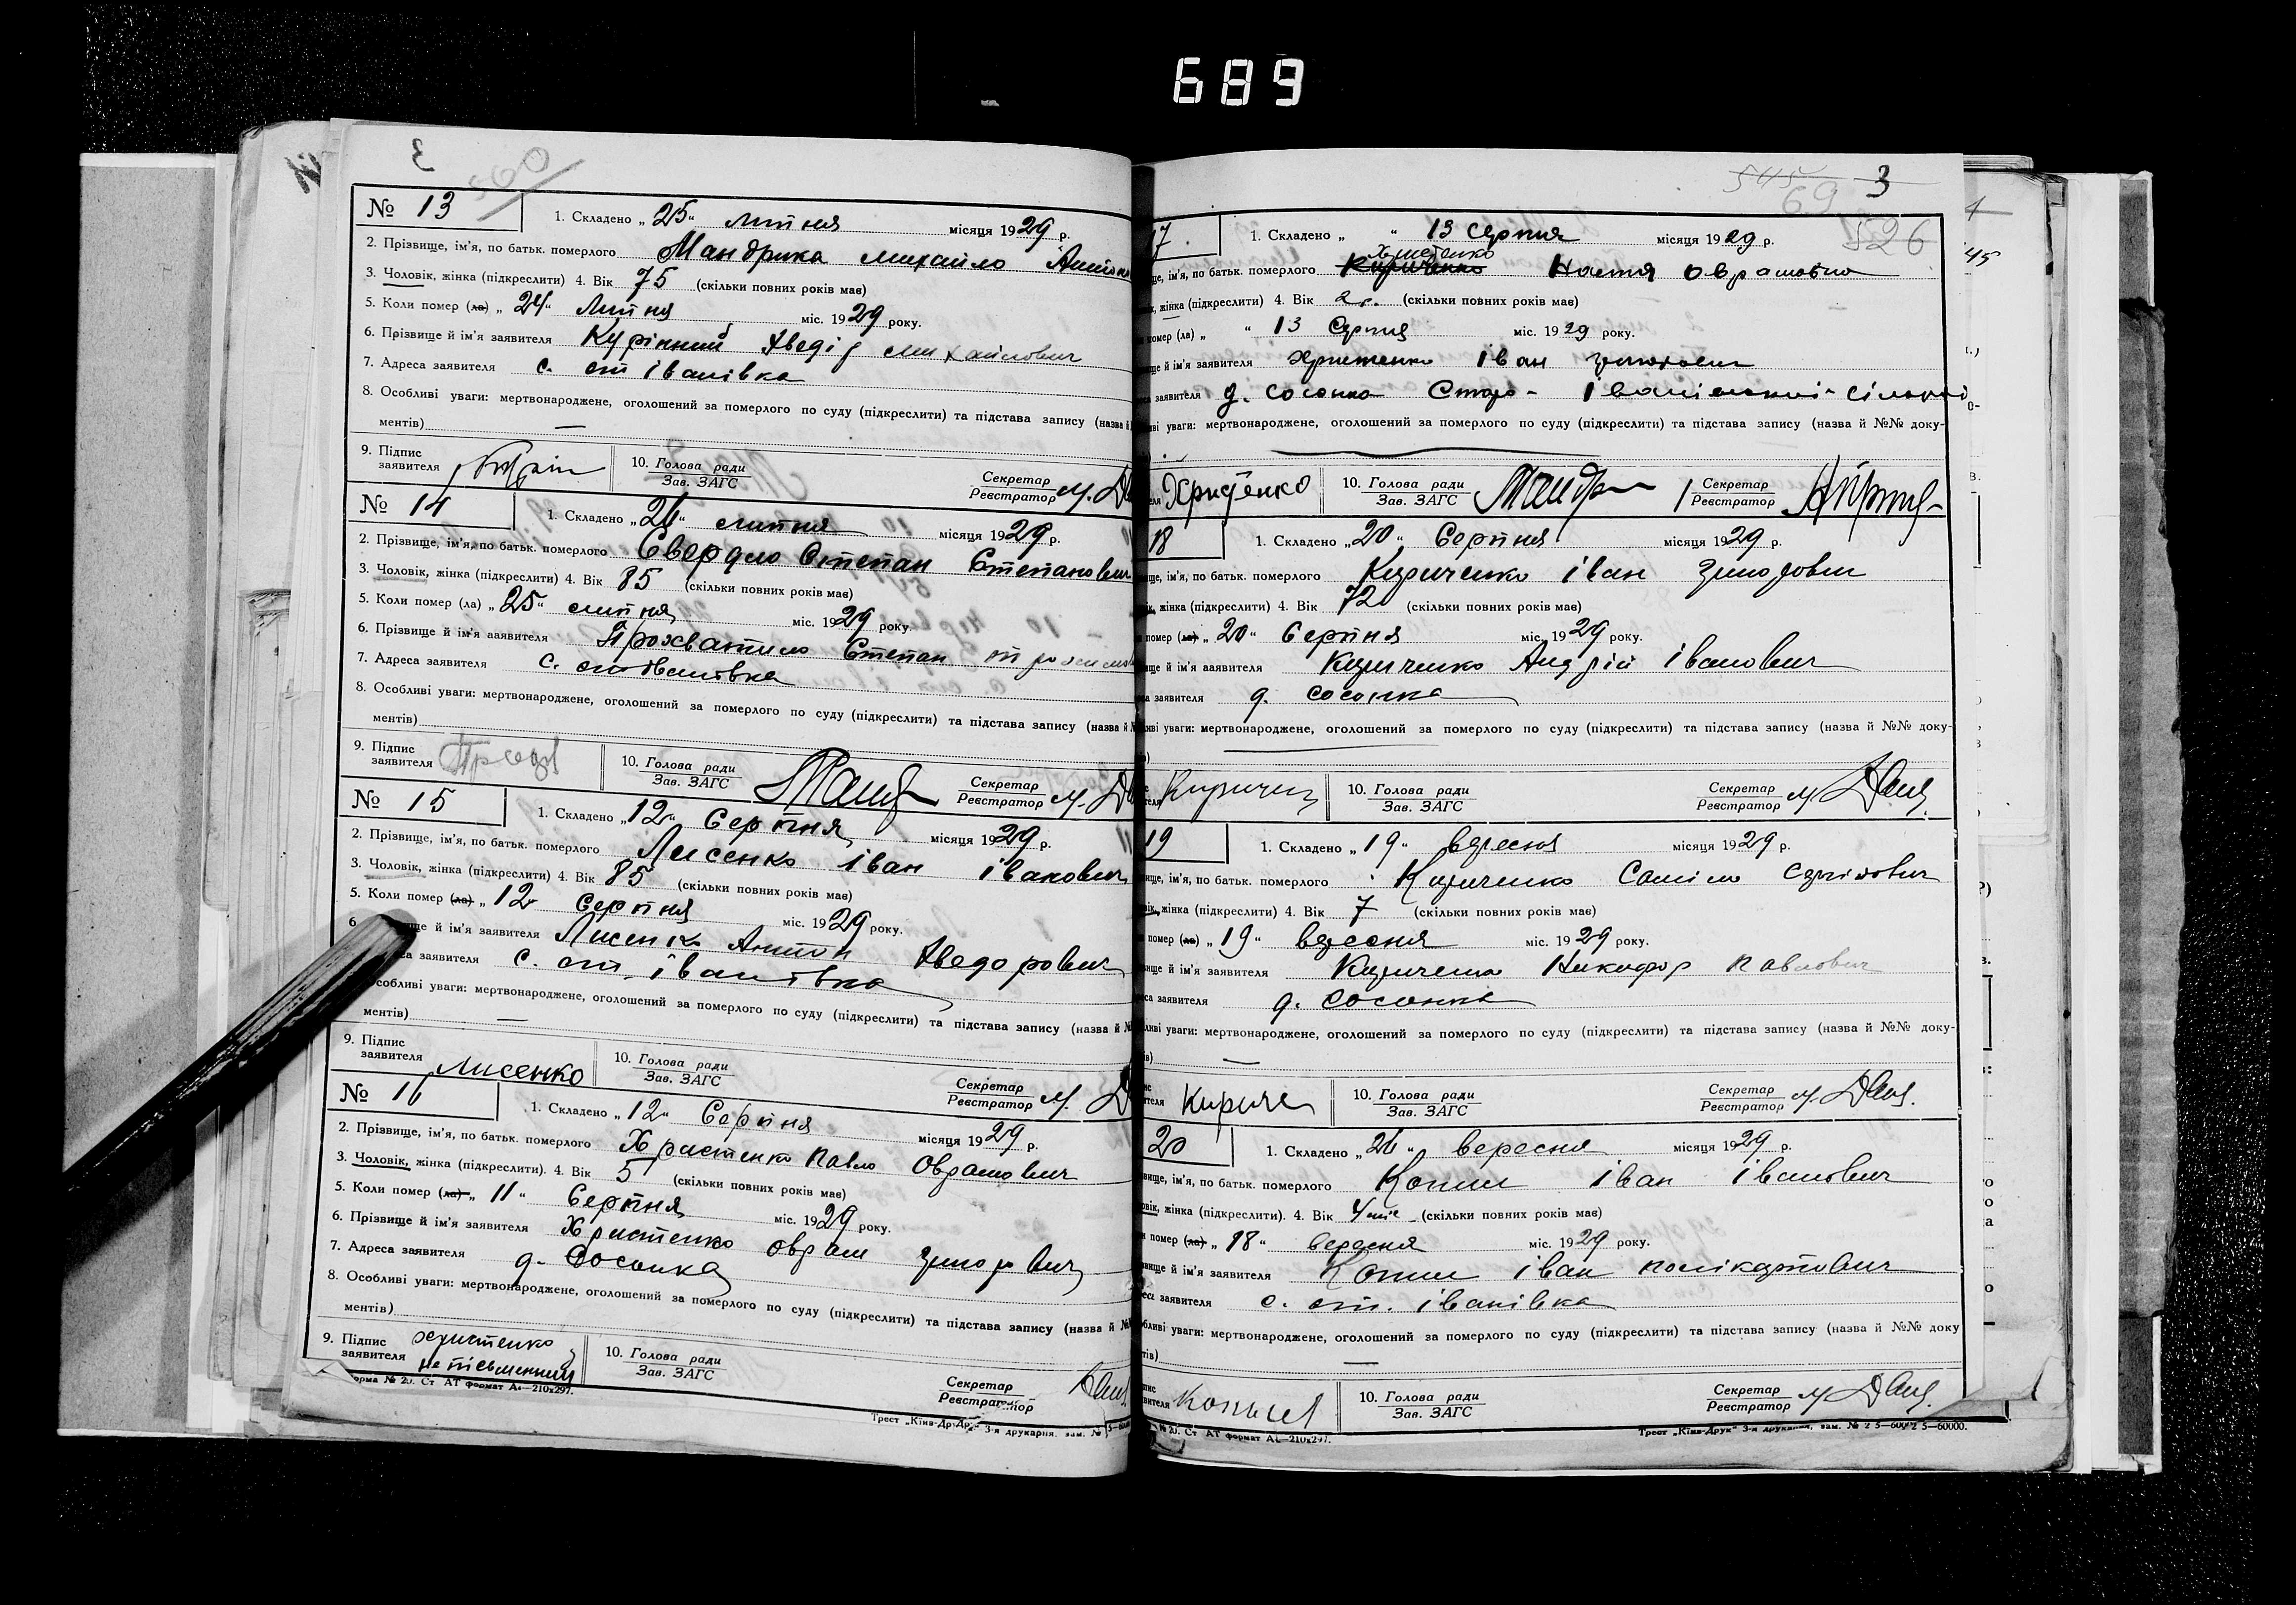 689
560
№ 13
1. Складено „25“ липня місяця 1929 р.
2. Прізвище, ім'я, по батьк. померлого Мандрика михайло
3. Чоловік, жінка (підкреслити) 4. Вік 75 (скільки повних років має)
5. Коли помер (ла) „24“ Липня міс. 1929 року.
6. Прізвище й ім'я заявителя Курінний Хведір михайлович
7. Адреса заявителя с. ст іванівка
8. Особливі уваги: мертвонароджене, оголошений за померлого по суду (підкреслити) та підстава запису (назва й
ментів) —
9. Підпис заявителя
10. Голова ради Зав. ЗАГС
Секретар Реєстратор М.
№ 14
1. Складено „26“ липня місяця 1929 р.
2. Прізвище, ім'я, по батьк. померлого Свердло Степан Степанович
3. Чоловік, жінка (підкреслити) 4. Вік 85 (скільки повних років має)
5. Коли помер (ла) „25“ липня міс. 1929 року.
6. Прізвище й ім'я заявителя Прохватило Степан
7. Адреса заявителя с. ст іванівка
8. Особливі уваги: мертвонароджене, оголошений за померлого по суду (підкреслити) та підстава запису (назва й
ментів)
9. Підпис заявителя
10. Голова ради Зав. ЗАГС
Секретар Реєстратор М.
№ 15
1. Складено „12“ Серпня місяця 1929 р.
2. Прізвище, ім'я, по батьк. померлого Лисенко іван іванович
3. Чоловік, жінка (підкреслити) 4. Вік 85 (скільки повних років має)
5. Коли помер (ла) „12 Серпня міс. 1929 року.
6 ще й ім'я заявителя Лисенко Антон Хведорович
са заявителя с. ст. іванівка
собливі уваги: мертвонароджене, оголошений за померлого по суду (підкреслити) та підстава запису (назва й
ментів) —
9. Підпис заявителя Лисенко
10. Голова ради Зав. ЗАГС
Секретар Реєстратор М.
№ 16
1. Складено „12“ Серпня місяця 1929 р.
2. Прізвище, ім'я, по батьк. померлого Христенко Павло Оврамович
3. Чоловік, жінка (підкреслити). 4. Вік 5 (скільки повних років має)
5. Коли помер (ла) „11“ Серпня міс. 1929 року.
6. Прізвище й ім'я заявителя Христенко Оврам
7. Адреса заявителя д. Сосонка
8. Особливі уваги: мертвонароджене, оголошений за померлого по суду (підкреслити) та підстава запису (назва й
ментів)
9. Підпис заявителя христенко не письменний
10. Голова ради Зав. ЗАГС
Секретар Реєстратор
орма № 20. Ст АТ формат А4—210х297.
Трест „Київ-Друк“ 3-я друкарня, зам. №
545 3
69
526
17.
1. Складено „ “ 13 серпня місяця 1929 р.
ще, ім'я, по батьк. померлого Кириченко Христенко Настя Оврамівна
к, жінка (підкреслити) 4. Вік 2 р. (скільки повних років має)
помер (ла) „ “ 13 Серпня міс. 1929 року.
ще й ім'я заявителя Христенко іван
са заявителя д. сосонка Старо-
иві уваги: мертвонароджене, оголошений за померлого по суду (підкреслити) та підстава запису (назва й №№ доку-
Христенко
10. Голова ради Зав. ЗАГС
Секретар Реєстратор
18
1. Складено „20“ Серпня місяця 1929 р.
ще, ім'я, по батьк. померлого Кириченко іван
ік, жінка (підкреслити) 4. Вік 72 (скільки повних років має)
помер (ла) „20“ Серпня міс. 1929 року.
ще й ім'я заявителя Кириченко Андрій іванович
са заявителя д. сосонка
иві уваги: мертвонароджене, оголошений за померлого по суду (підкреслити) та підстава запису (назва й №№ доку-
10. Голова ради Зав. ЗАГС
Секретар Реєстратор М.
19
1. Складено „19“ вересня місяця 1929 р.
ище, ім'я, по батьк. померлого Кириченко
вік, жінка (підкреслити) 4. Вік 7 (скільки повних років має)
помер (ла) „19“ вересня міс. 1929 року.
ище й ім'я заявителя Кириченко Никифор Павлович
еса заявителя д. сосонка
ливі уваги: мертвонароджене, оголошений за померлого по суду (підкреслити) та підстава запису (назва й №№ доку-
ів) —
Кириче
10. Голова ради Зав. ЗАГС
Секретар Реєстратор М.
20
1. Складено „26“ вересня місяця 1929 р.
вище, ім'я, по батьк. померлого Копил іван іванович
овік, жінка (підкреслити). 4. Вік 4 міс (скільки повних років має)
помер (ла) „18“ вересня міс. 1929 року.
вище й ім'я заявителя Копил іван полікарпович
еса заявителя с. ст. іванівка
бливі уваги: мертвонароджене, оголошений за померлого по суду (підкреслити) та підстава запису (назва й №№ доку
тів) —
Копил
10. Голова ради Зав. ЗАГС
Секретар Реєстратор М.
№ 20. Ст АТ формат А4—210х297.
Трест „Київ-Друк“ 3-я друкарня, зам. №